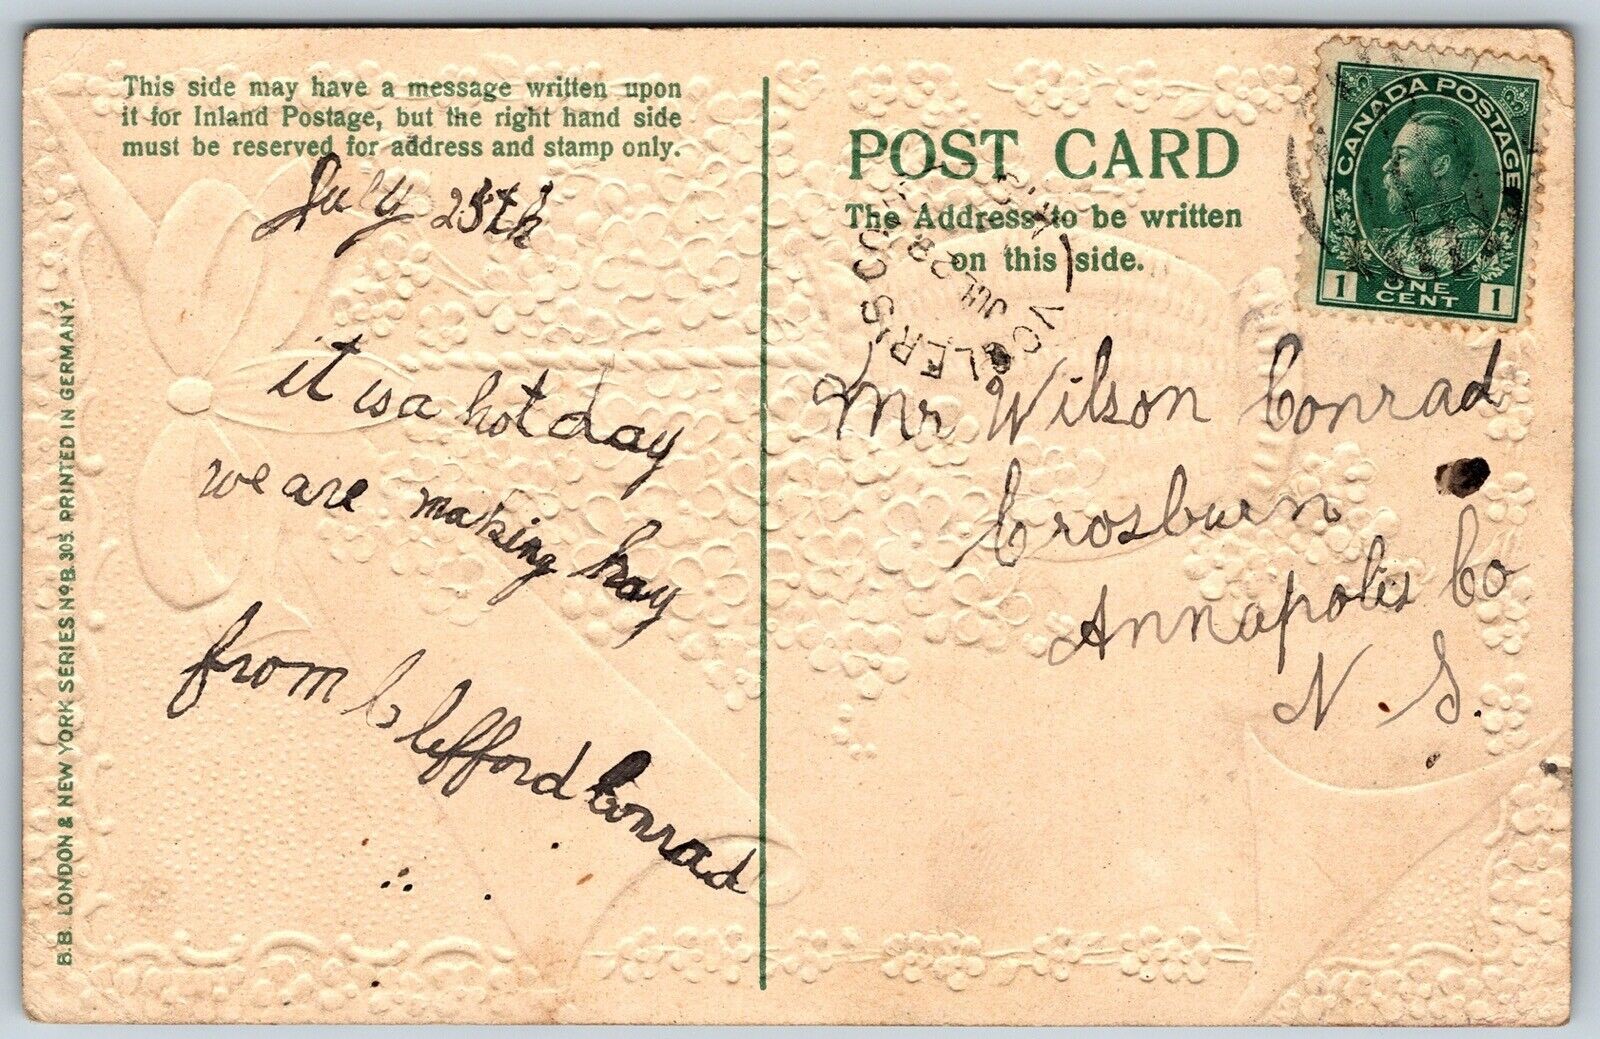 This side may have a message written upon
it for Inland Postage, but the right hand side
must be reserved for address and stamp only.
July 25th
it is a hot day
we are making hay
from Clifford Conrad
B.B. LONDON & NEW YORK SERIES No B.305. PRINTED IN GERMANY.
POST CARD
The Address to be written
on this side.
CANADA POSTAGE
1 ONE CENT 1
VOGLER'S COVE
JUL 28
N.S.
Mr Wilson Conrad
Crosburn
Annapolis Co
N. S.